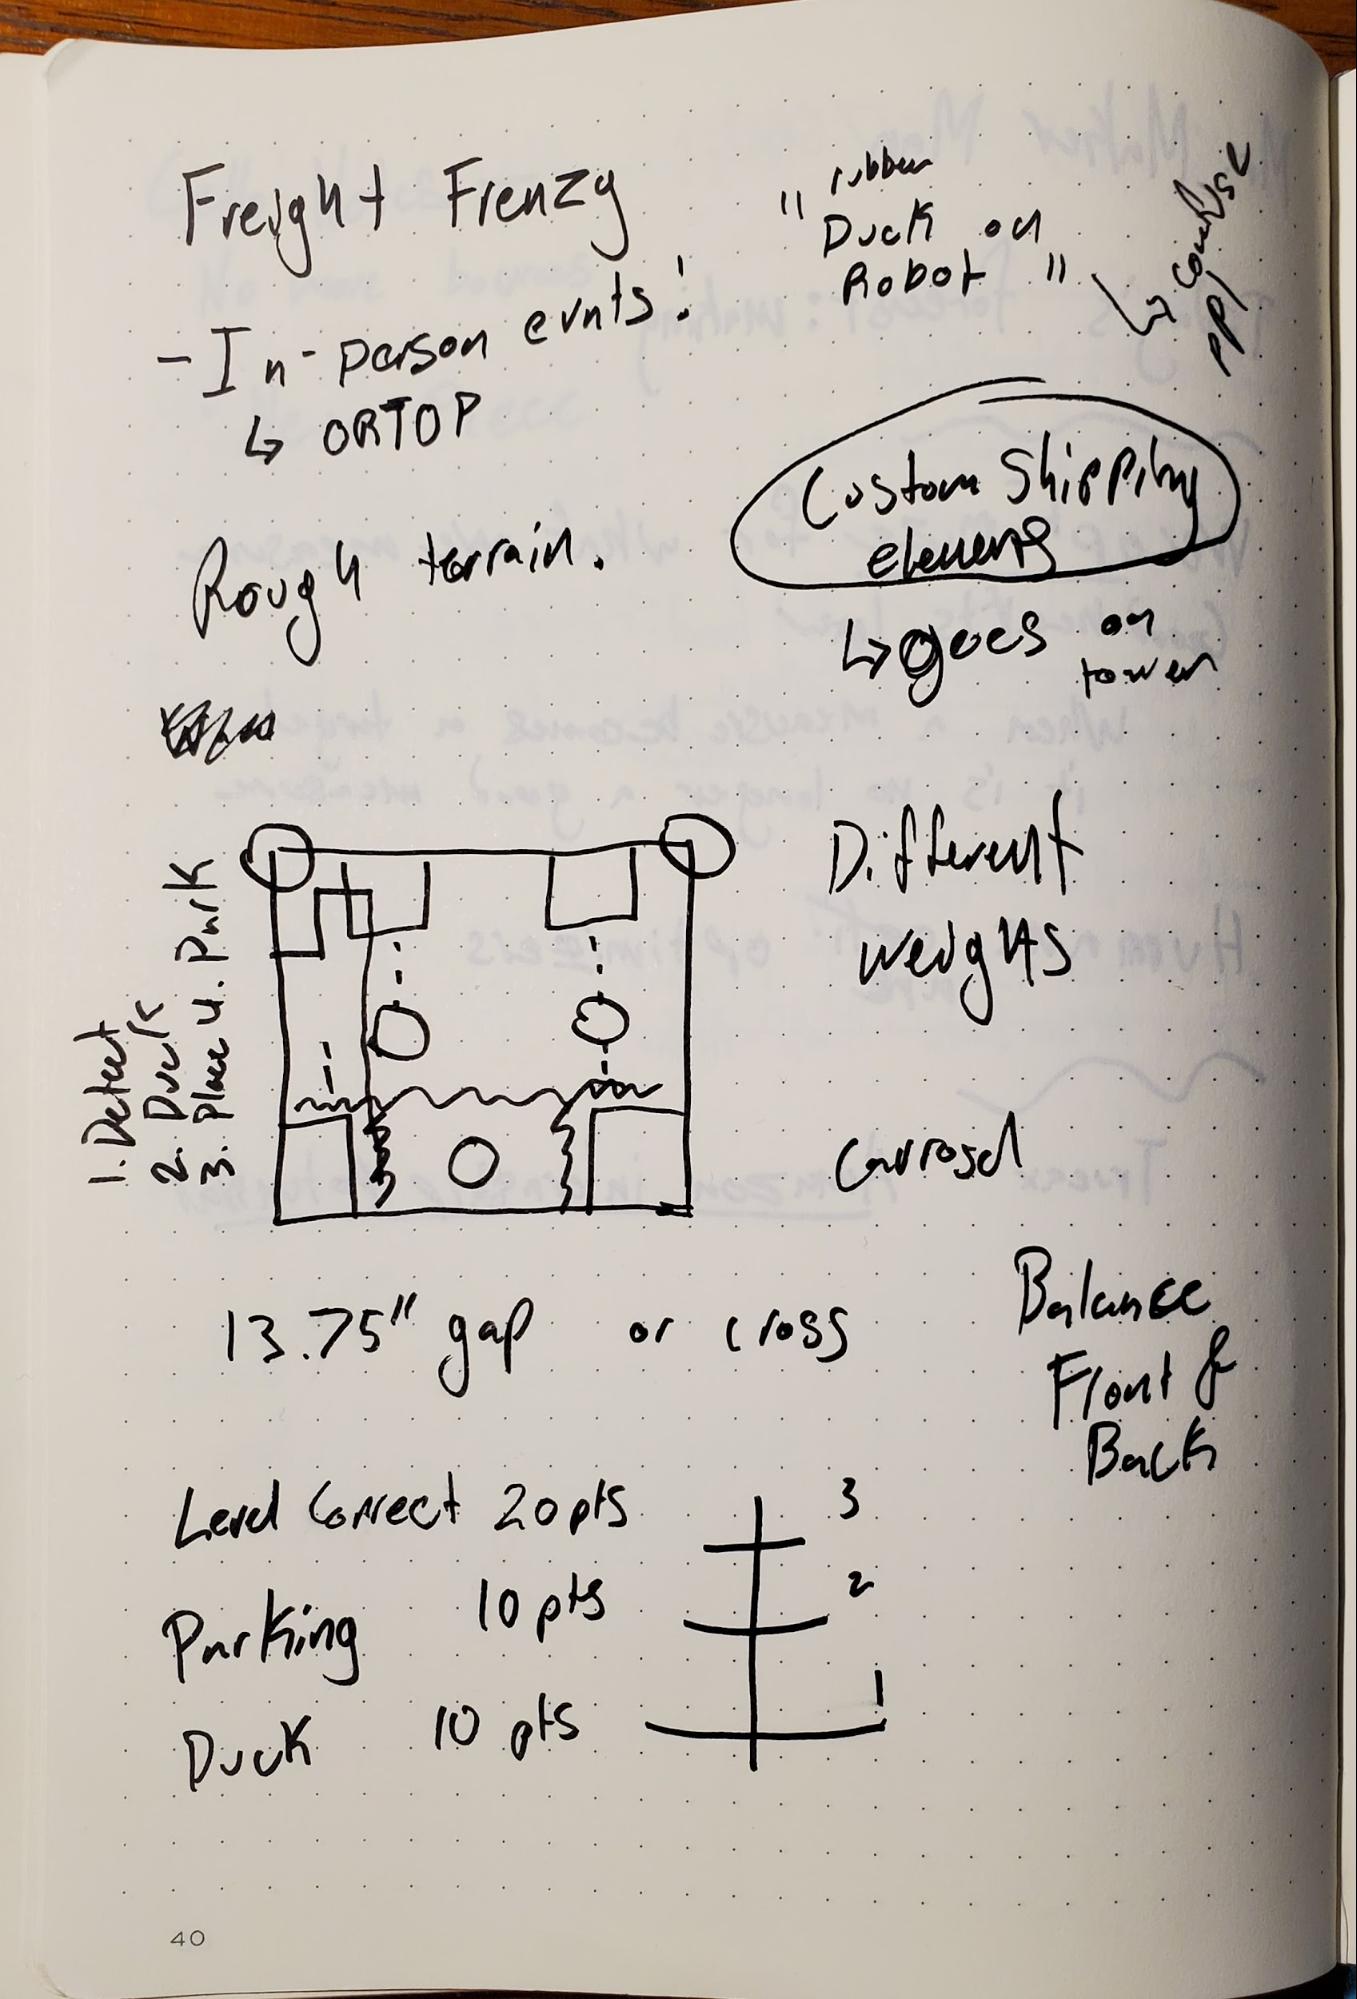 Freight Frenzy
- In-person evnts!
↳ ORTOP
"rubber
Duck on
Robot"
Custom Shipping
elements
↳ goes on
tower
Rough terrain.
1. Detect
2. Duck
3. Place 4. Park
Different
weights
Carrosel
13.75" gap or cross
Balance
Front &
Back
Level Correct 20pts
Parking 10 pts
Duck 10 pts
3
2
1
40